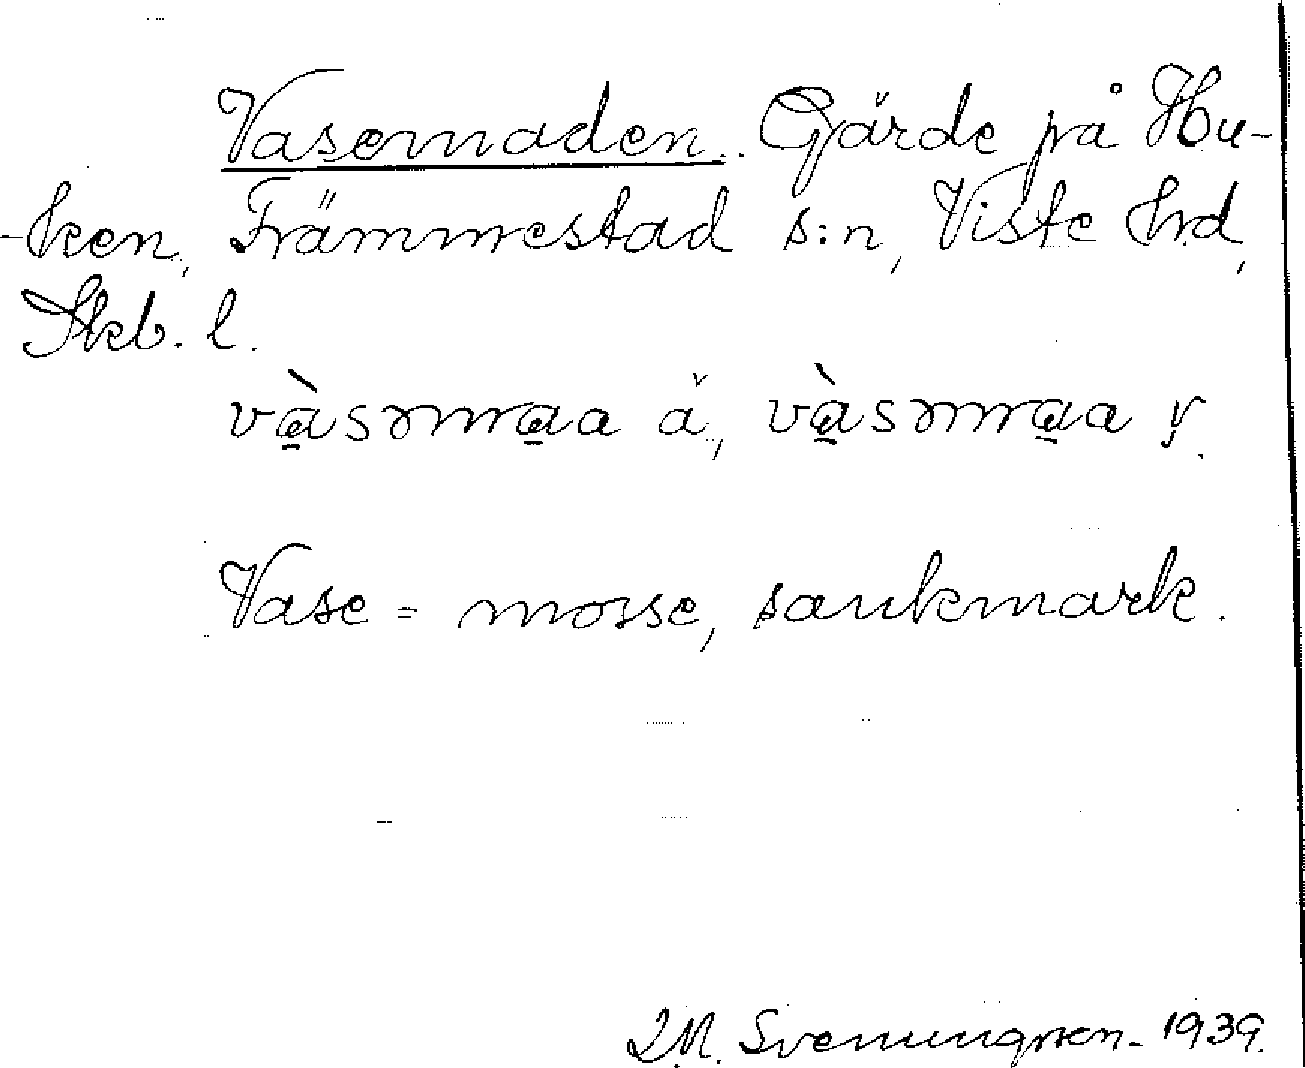 Vasemaden. Gärde på Hu-
-ken, Främmestad s:n, Viste hrd,
Skb. l.
vàsəmaa å, vàsəmaa
Vase = mosse, sankmark.
Svenungsson. 1939.